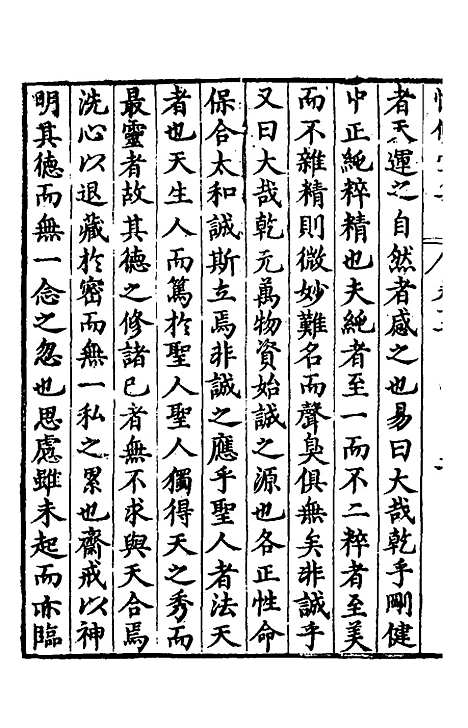 者天運之自然者感之也易曰大哉乾乎剛健
中正純粹精也夫純者至一而不二粹者至美
而不雜精則微妙難名而聲臭俱無矣非誠乎
又曰大哉乾元萬物資始誠之源也各正性命
保合太和誠斯立焉非誠之應乎聖人者法天
者也天生人而篤於聖人聖人獨得天之秀而
最靈者故其德之修諸已者無不求與天合焉
洗心以退藏於密而無一私之累也齋戒以神
明其德而無一念之忽也思慮雖未起而亦臨